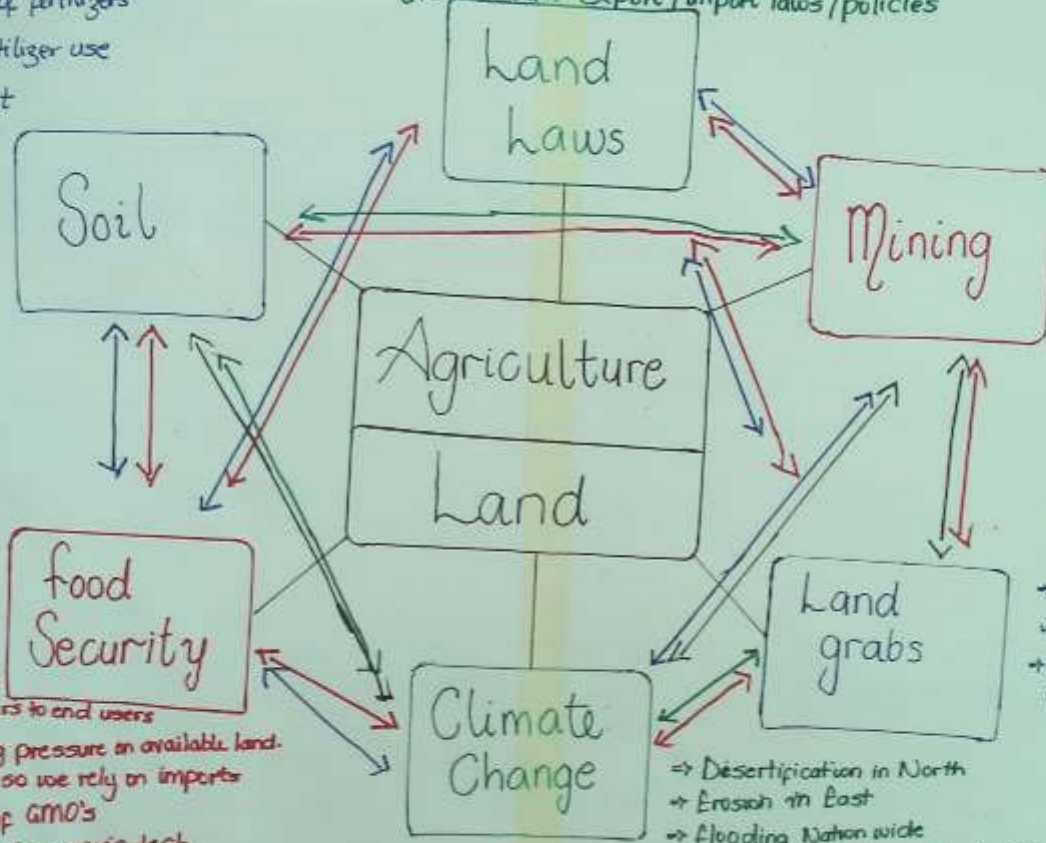 of fertilizers
Export/import laws/policies
fertilizer use
Land
Laws
Soil
Mining
Agriculture
Land
food
Security
Land
grabs
Climate
Change
to end users
pressure on available land.
so we rely on imports
of GMO's
=> Desertification in North
=> Erosion in East
=> flooding Nation wide